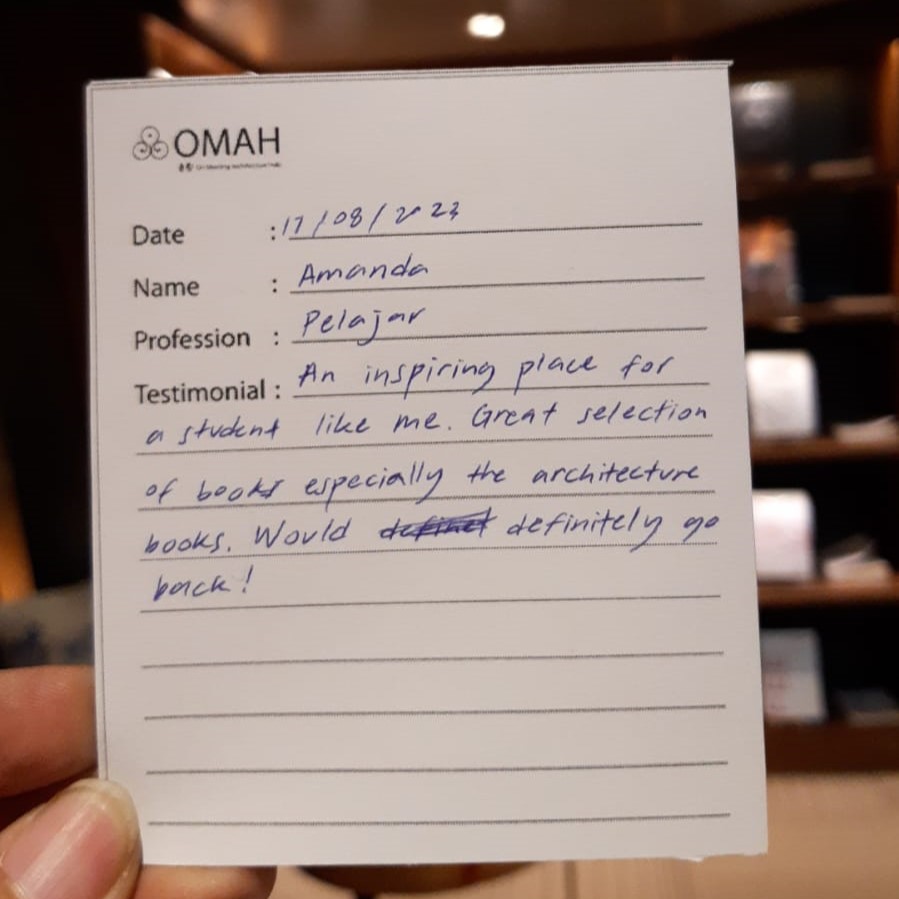 OMAH
Date : 17/08/2023
Name : Amanda
Profession : Pelajar
Testimonial : An inspiring place for
a student like me. Great selection
of books especially the architecture
books. Would definitely go
back!